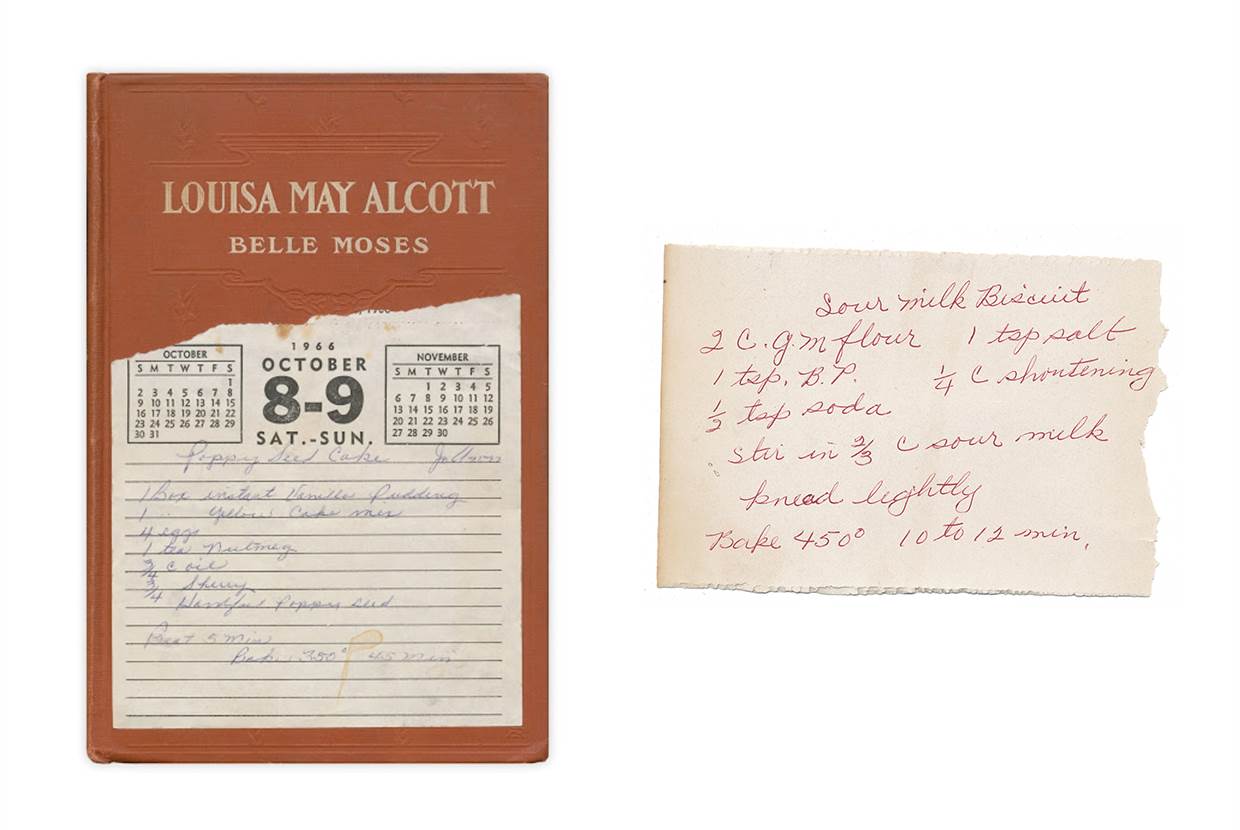 LOUISA MAY ALCOTT
BELLE MOSES
1966
OCTOBER
8-9
SAT.-SUN.
OCTOBER
S M T W T F S
1
2 3 4 5 6 7 8
9 10 11 12 13 14 15
16 17 18 19 20 21 22
23 24 25 26 27 28 29
30 31
NOVEMBER
S M T W T F S
1 2 3 4 5
6 7 8 9 10 11 12
13 14 15 16 17 18 19
20 21 22 23 24 25 26
27 28 29 30
Poppy Seed Cake
1 Box instant Vanilla Pudding
1 " Yellow Cake mix
4 eggs
1 tea Nutmeg
3/4 c oil
3/4 Sherry
Handful Poppy seed
Beat 5 Min
Bake 350° 45 min
Sour milk Biscuit
2 C. G.M flour 1 tsp salt
1 tsp. B.P. 1/4 C shortening
1/2 tsp soda
Stir in 2/3 C sour milk
knead lightly
Bake 450° 10 to 12 min.